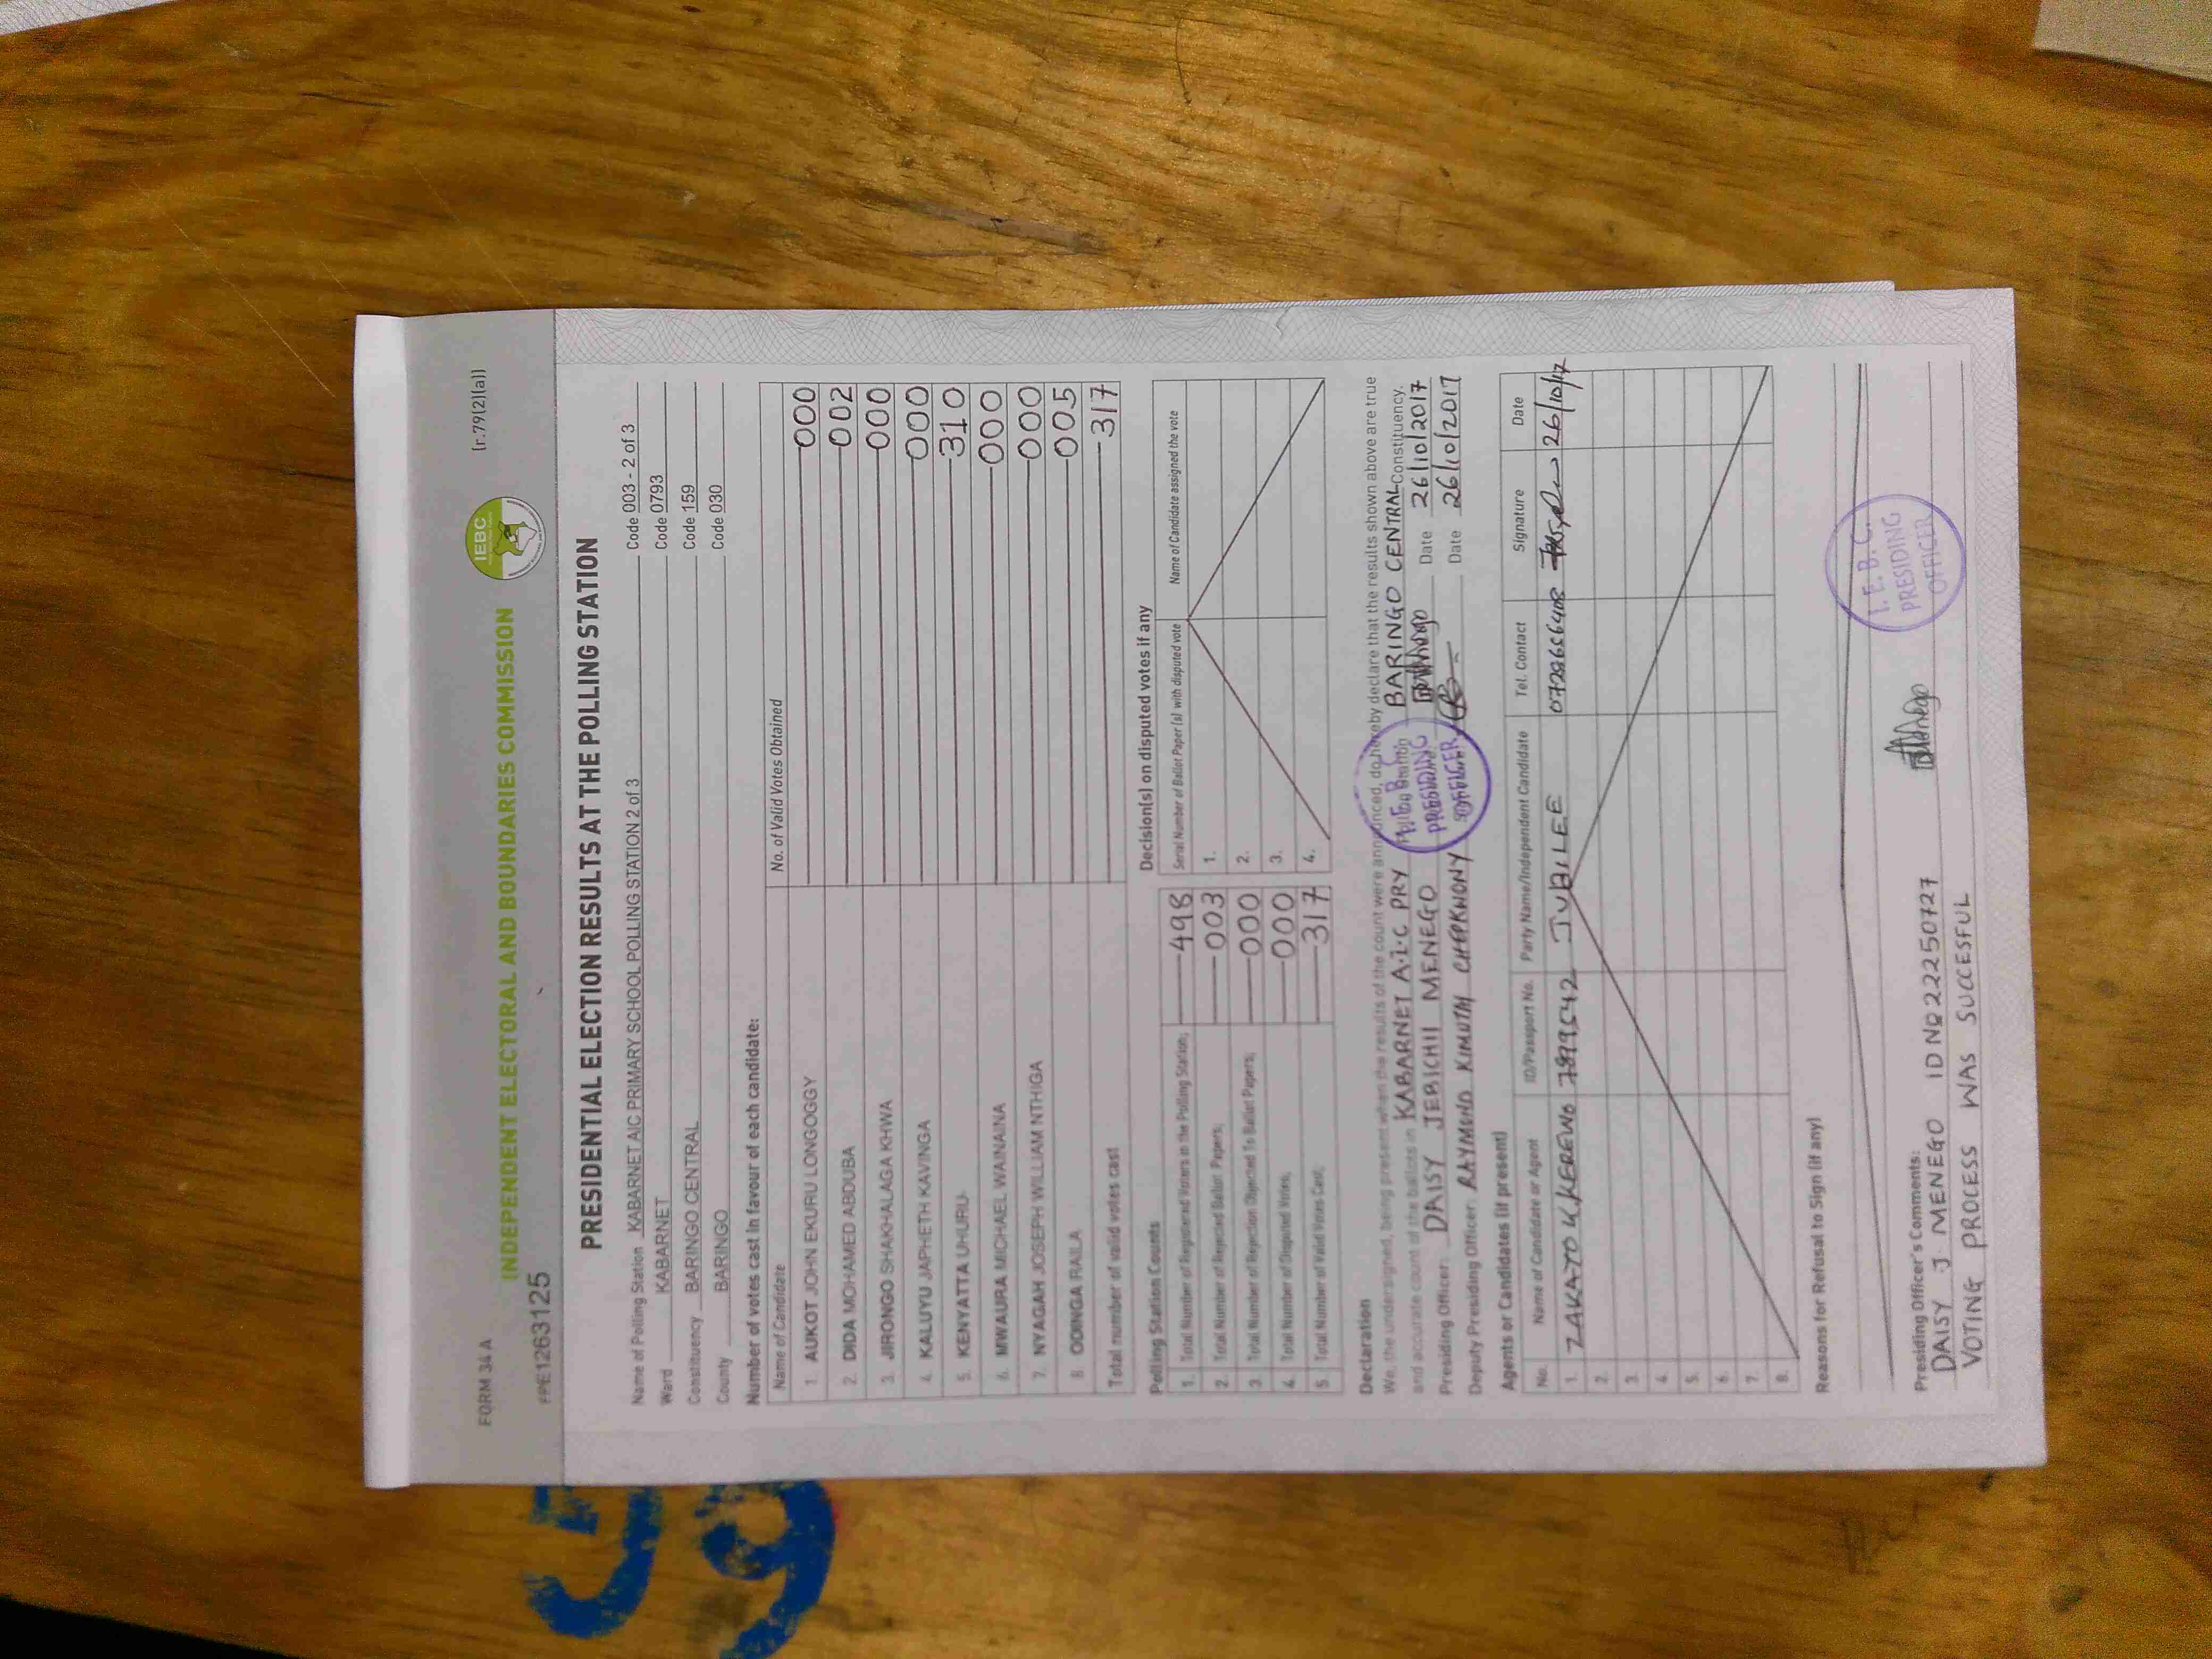 FORM 34 A
[r.79(2)(a)]
INDEPENDENT ELECTORAL AND BOUNDARIES COMMISSION
IEBC
PRE1263125
PRESIDENTIAL ELECTION RESULTS AT THE POLLING STATION
Name of Polling Station KABARNET AIC PRIMARY SCHOOL POLLING STATION 2 of 3 Code 003 - 2 of 3
Ward KABARNET Code 0793
Constituency BARINGO CENTRAL Code 159
County BARINGO Code 030
Number of votes cast in favour of each candidate:
Name of Candidate No. of Valid Votes Obtained
1. AUKOT JOHN EKURU LONGOGGY 000
2. DIDA MOHAMED ABDUBA 002
3. JIRONGO SHAKHALAGA KHWA 000
4. KALUYU JAPHETH KAVINGA 000
5. KENYATTA UHURU 310
6. MWAURA MICHAEL WAINAINA 000
7. NYAGAH JOSEPH WILLIAM NTHIGA 000
8 ODINGA RAILA 005
Total number of valid votes cast 317
Polling Station Counts
1. Total Number of Registered Voters in the Polling Station; 498
2. Total Number of Rejected Ballot Papers; 003
3. Total Number of Rejection Objected To Ballot Papers; 000
4. Total Number of Disputed Votes; 000
5 Total Number of Valid Votes Cast; 317
Decision(s) on disputed votes if any
Serial Number of Ballot Paper (s) with disputed vote Name of Candidate assigned the vote
1.
2.
3.
4.
Declaration
We, the undersigned, being present when the results of the count were announced, do hereby declare that the results shown above are true
and accurate count of the ballots in KABARNET A.I.C PRY Polling Station BARINGO CENTRAL Constituency.
Presiding Officer: DAISY JERICHI MENEGO Date 26/10/2017
Deputy Presiding Officer: RAYMOND KIMUTAI CHEPKWONY Date 26/10/2017
I.E.B.C.
PRESIDING
OFFICER
Agents or Candidates (if present)
No. Name of Candidate or Agent ID/Passport No. Party Name/Independent Candidate Tel. Contact Signature Date
1. ZAKAYO K KEREWO 7899542 JUBILEE 26/10/17
2.
3.
4.
5.
6.
7.
8.
Reasons for Refusal to Sign (if any)
Presiding Officer's Comments:
DAISY J MENEGO ID NO 22250727
VOTING PROCESS WAS SUCCESFUL
I.E.B.C.
PRESIDING
OFFICER